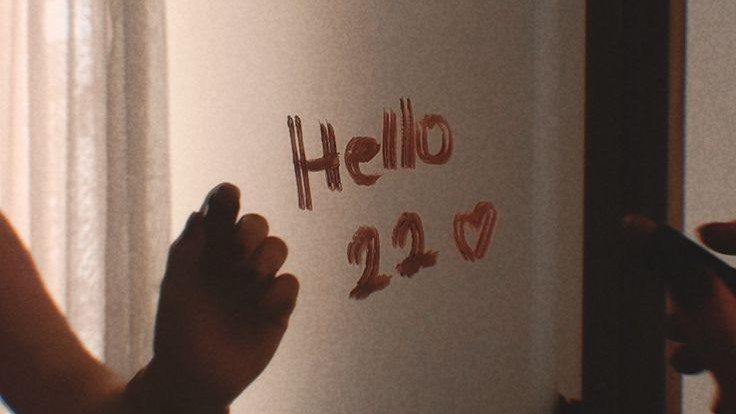 Hello
22 ♡